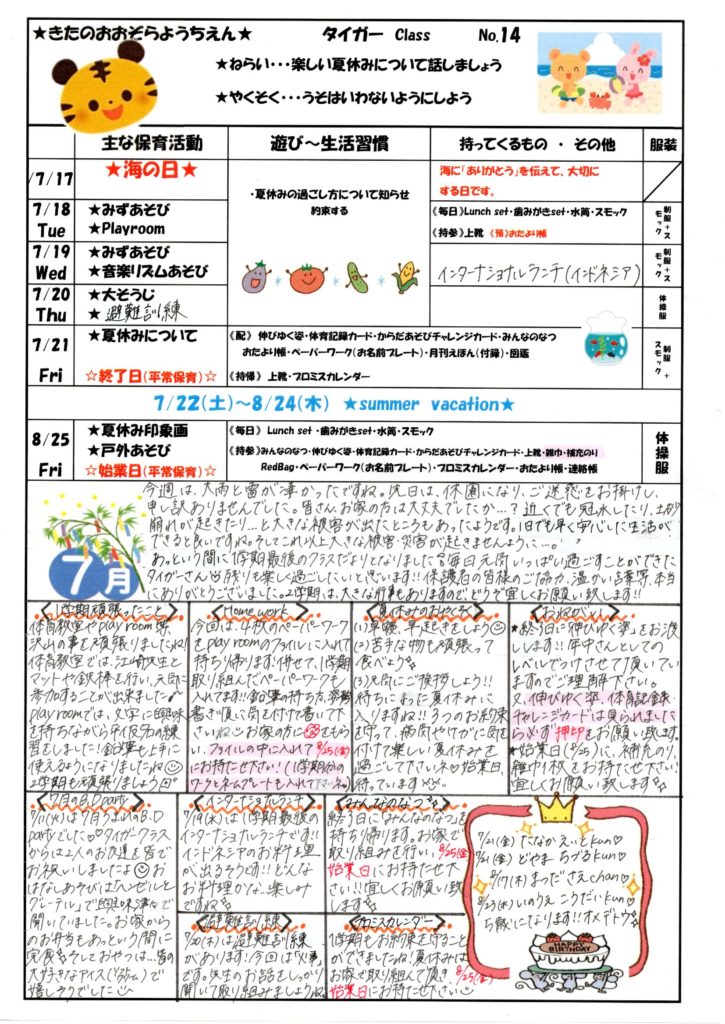 ★きたのおおぞらようちえん★ タイガー Class No.14
★ねらい・・・楽しい夏休みについて話しましょう
★やくそく・・・うそはいわないようにしよう
主な保育活動 遊び～生活習慣 持ってくるもの ・ その他 服装
/7/17 ★海の日★
・夏休みの過ごし方について知らせ
約束する
海に「ありがとう」を伝えて、大切に
する日です。
7/18 Tue
★みずあそび
★Playroom
《毎日》Lunch set・歯みがきset・水筒・スモック
《持参》上靴 《預》おたより帳
制服+スモック
7/19 Wed
★みずあそび
★音楽リズムあそび
インターナショナルランチ(インドネシア)
制服+スモック
7/20 Thu
★大そうじ
★避難訓練
体操服
7/21 Fri
★夏休みについて
☆終了日(平常保育)☆
《配》 伸びゆく姿・体育記録カード・からだあそびチャレンジカード・みんなのなつ
おたより帳・ペーパーワーク(お名前プレート)・月刊えほん(付録)・図鑑
《持帰》 上靴・プロミスカレンダー
制服+スモック
7/22(土)～8/24(木) ★summer vacation★
8/25 Fri
★夏休み印象画
★戸外あそび
☆始業日(平常保育)☆
《毎日》 Lunch set ・歯みがきset・水筒・スモック
《持参》みんなのなつ・伸びゆく姿・体育記録カード・からだあそびチャレンジカード・上靴・雑巾・補充のり
RedBag・ペーパーワーク(お名前プレート)・プロミスカレンダー・おたより帳・連絡帳
体操服
7月
今週は、大雨と雷が凄かったですね。先日は、休園になり、ご迷惑をお掛けし、
申し訳ありませんでした。皆さん、お家の方は大丈夫でしたか…？近くでも冠水したり、土砂
崩れが起きたり…と大きな被害が出たところもあったようです。1日でも早く安心した生活が
できると良いですね。そしてこれ以上大きな被害・災害が起きませんように…。
あっという間に1学期最後のクラスだよりとなりました。毎日元気いっぱい過ごすことができた
タイガーさん 残りも楽しく過ごしたいと思います!!保護者の皆様のご協力、温かい言葉等、本当
にありがとうございました。2学期も、大きな行事もありますので、どうぞ宜しくお願い致します!!
1学期頑張ったこと
体育教室やplay room等、
沢山の事を頑張りましたね!
体育教室では、江崎先生と
マットや鉄棒を行い、元気に
参加することが出来ました
play roomでは、文字に興味
を持ちながら平仮名の練
習をしました!鉛筆も上手に
使えるようになりましたね
2学期も頑張りましょう
Home work
今回は、4枚のペーパーワーク
をplay roomのファイルに入れて
持ち帰ります!併せて、1学期
取り組んだペーパーワークも
入れてます!!鉛筆の持ち方、姿勢、
書き順に気を付けて書いて下
さいね お家の方に をもら
い、ファイルの中に入れて8/25(金)
にお持ち下さい!!(1学期分の
ワークとネームプレートも入れて下さいネ)
夏休みのおやくそく
(1)早寝・早起きをしよう
(2)苦手な物も頑張って
食べよう
(3)元気にご挨拶しよう!!
待ちにまった夏休みに
入りますね!!3つのお約束
を守って、病気やけがに気を
付けて楽しい夏休みを
過ごして下さいネ 始業日、
待っています
おねがい
★終了日に「伸びゆく姿」をお渡
しします!!年中さんとしての
レベルでつけさせて頂いてい
ますのでご理解下さい。
又、伸びゆく姿、体育記録・
チャレンジカードは見られました
ら必ず押印をお願い致します。
★始業日(8/25)に、補充のり、
雑巾1枚をお持たせ下さい!
宜しくお願い致します
7月のB.D party
7/11(火)は7月うまれのB.D
partyでした♡タイガークラス
からは2人のお友達を皆で
お祝いしましたよ お
はなしあそびは「ヘンゼルと
グレーテル」で興味津々で
聞いていました。お家から
のお弁当もあっという間に
完食 そしておやつは…皆の
大好きなアイス(クリーム)で
嬉しそうでした
インターナショナルランチ
7/19(水)は1学期最後の
インターナショナルランチです!!
インドネシアのお料理
が出るそう!!どんな
お料理かな…楽しみ
ですね
避難訓練
7/20(木)は避難訓練
があります!今回は「火事」
です。先生のお話をしっかり
聞いて取り組みましょうね
みんなのなつ
終了日に「みんなのなつ」を
持ち帰ります。お家で
取り組みを行い、8/25(金)
始業日にお持たせ下さ
い!!宜しくお願い致
します
プロミスカレンダー
1学期もお約束を守ること
ができましたね!夏休みは
お家で取り組んで頂き 8/25(金)
始業日にお持たせ下さい
7/21(金) たなか えいとkun♡
7/21(金) どやま ちづるkun♡
8/17(木) まつだ さえchan♡
8/23(水) いのうえ こうだいkun♡
5歳になります!!オメデトウ
HAPPY BIRTHDAY